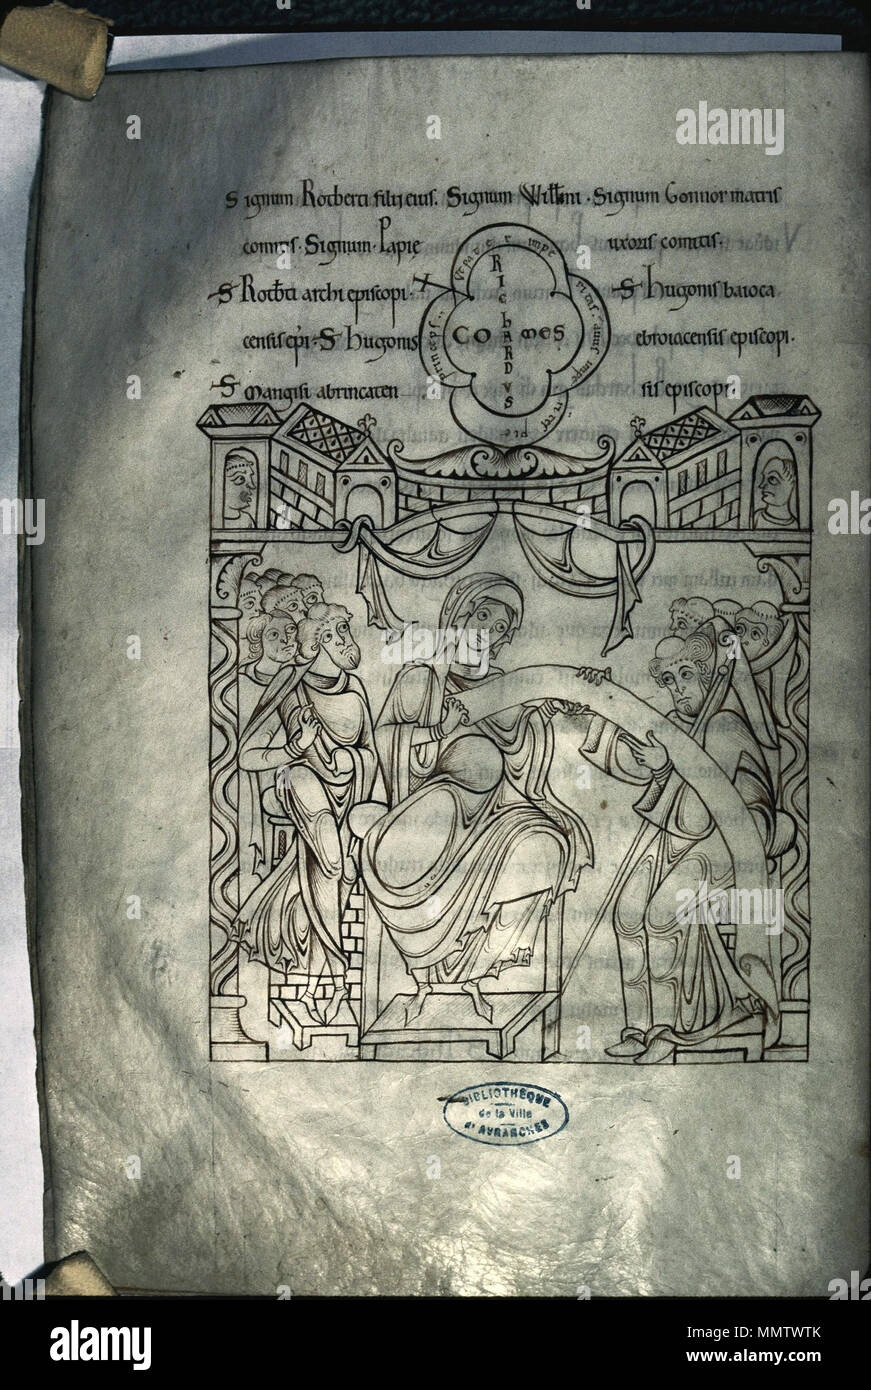 Signum Rotberti filii eius. Signum Willmi. Signum Gonnor matris
comitis. Signum. Papię uxoris comitis.
S Rotbti archi episcopi. S hugonis baioca
censis epi. S hugonis ebroiacensis episcopi.
S Mangisi abrincaten sis episcopi
RIchARDVS
COMES
BIBLIOTHÈQUE
de la Ville
d'AVRANCHES
a
alamy
alamy
Image ID: MMTWTK
www.alamy.com